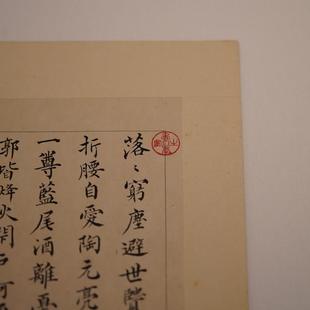 落〻窮塵避世賢
折腰自愛陶元亮
一尊藍尾酒離
郭皆烽火閉